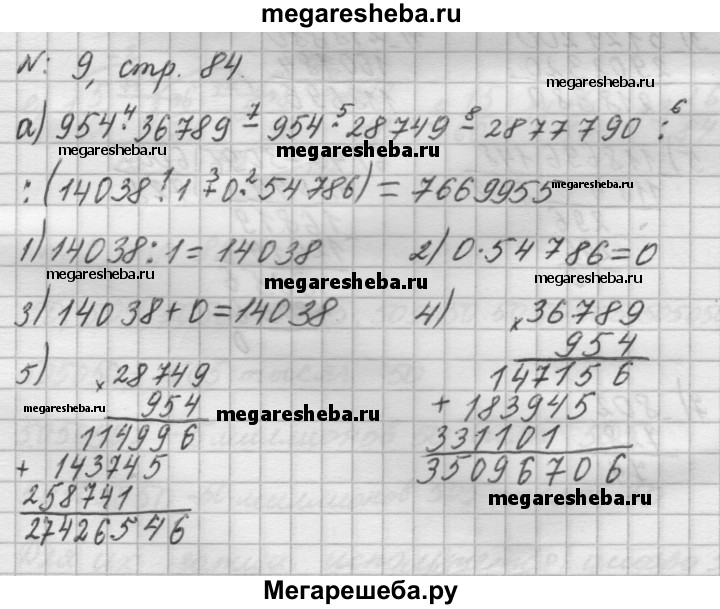 megaresheba.ru
№ 9, стр. 84.
megaresheba.ru
а) 954 ·⁴ 36789 −⁷ 954 ·⁵ 28749 −⁸ 2877790 :⁶
megaresheba.ru megaresheba.ru
: (14038 :¹ 1 +³ 0 ·² 54786) = 7669955
megaresheba.ru
1) 14038 : 1 = 14038 2) 0 · 54786 = 0
megaresheba.ru megaresheba.ru megaresheba.ru
3) 14038 + 0 = 14038 4) × 36789
954
147156
+ 183945
331101
35096706
5) × 28749
954
114996
+ 143745
258741
27426546
megaresheba.ru megaresheba.ru
megaresheba.ru
Мегарешеба.ру